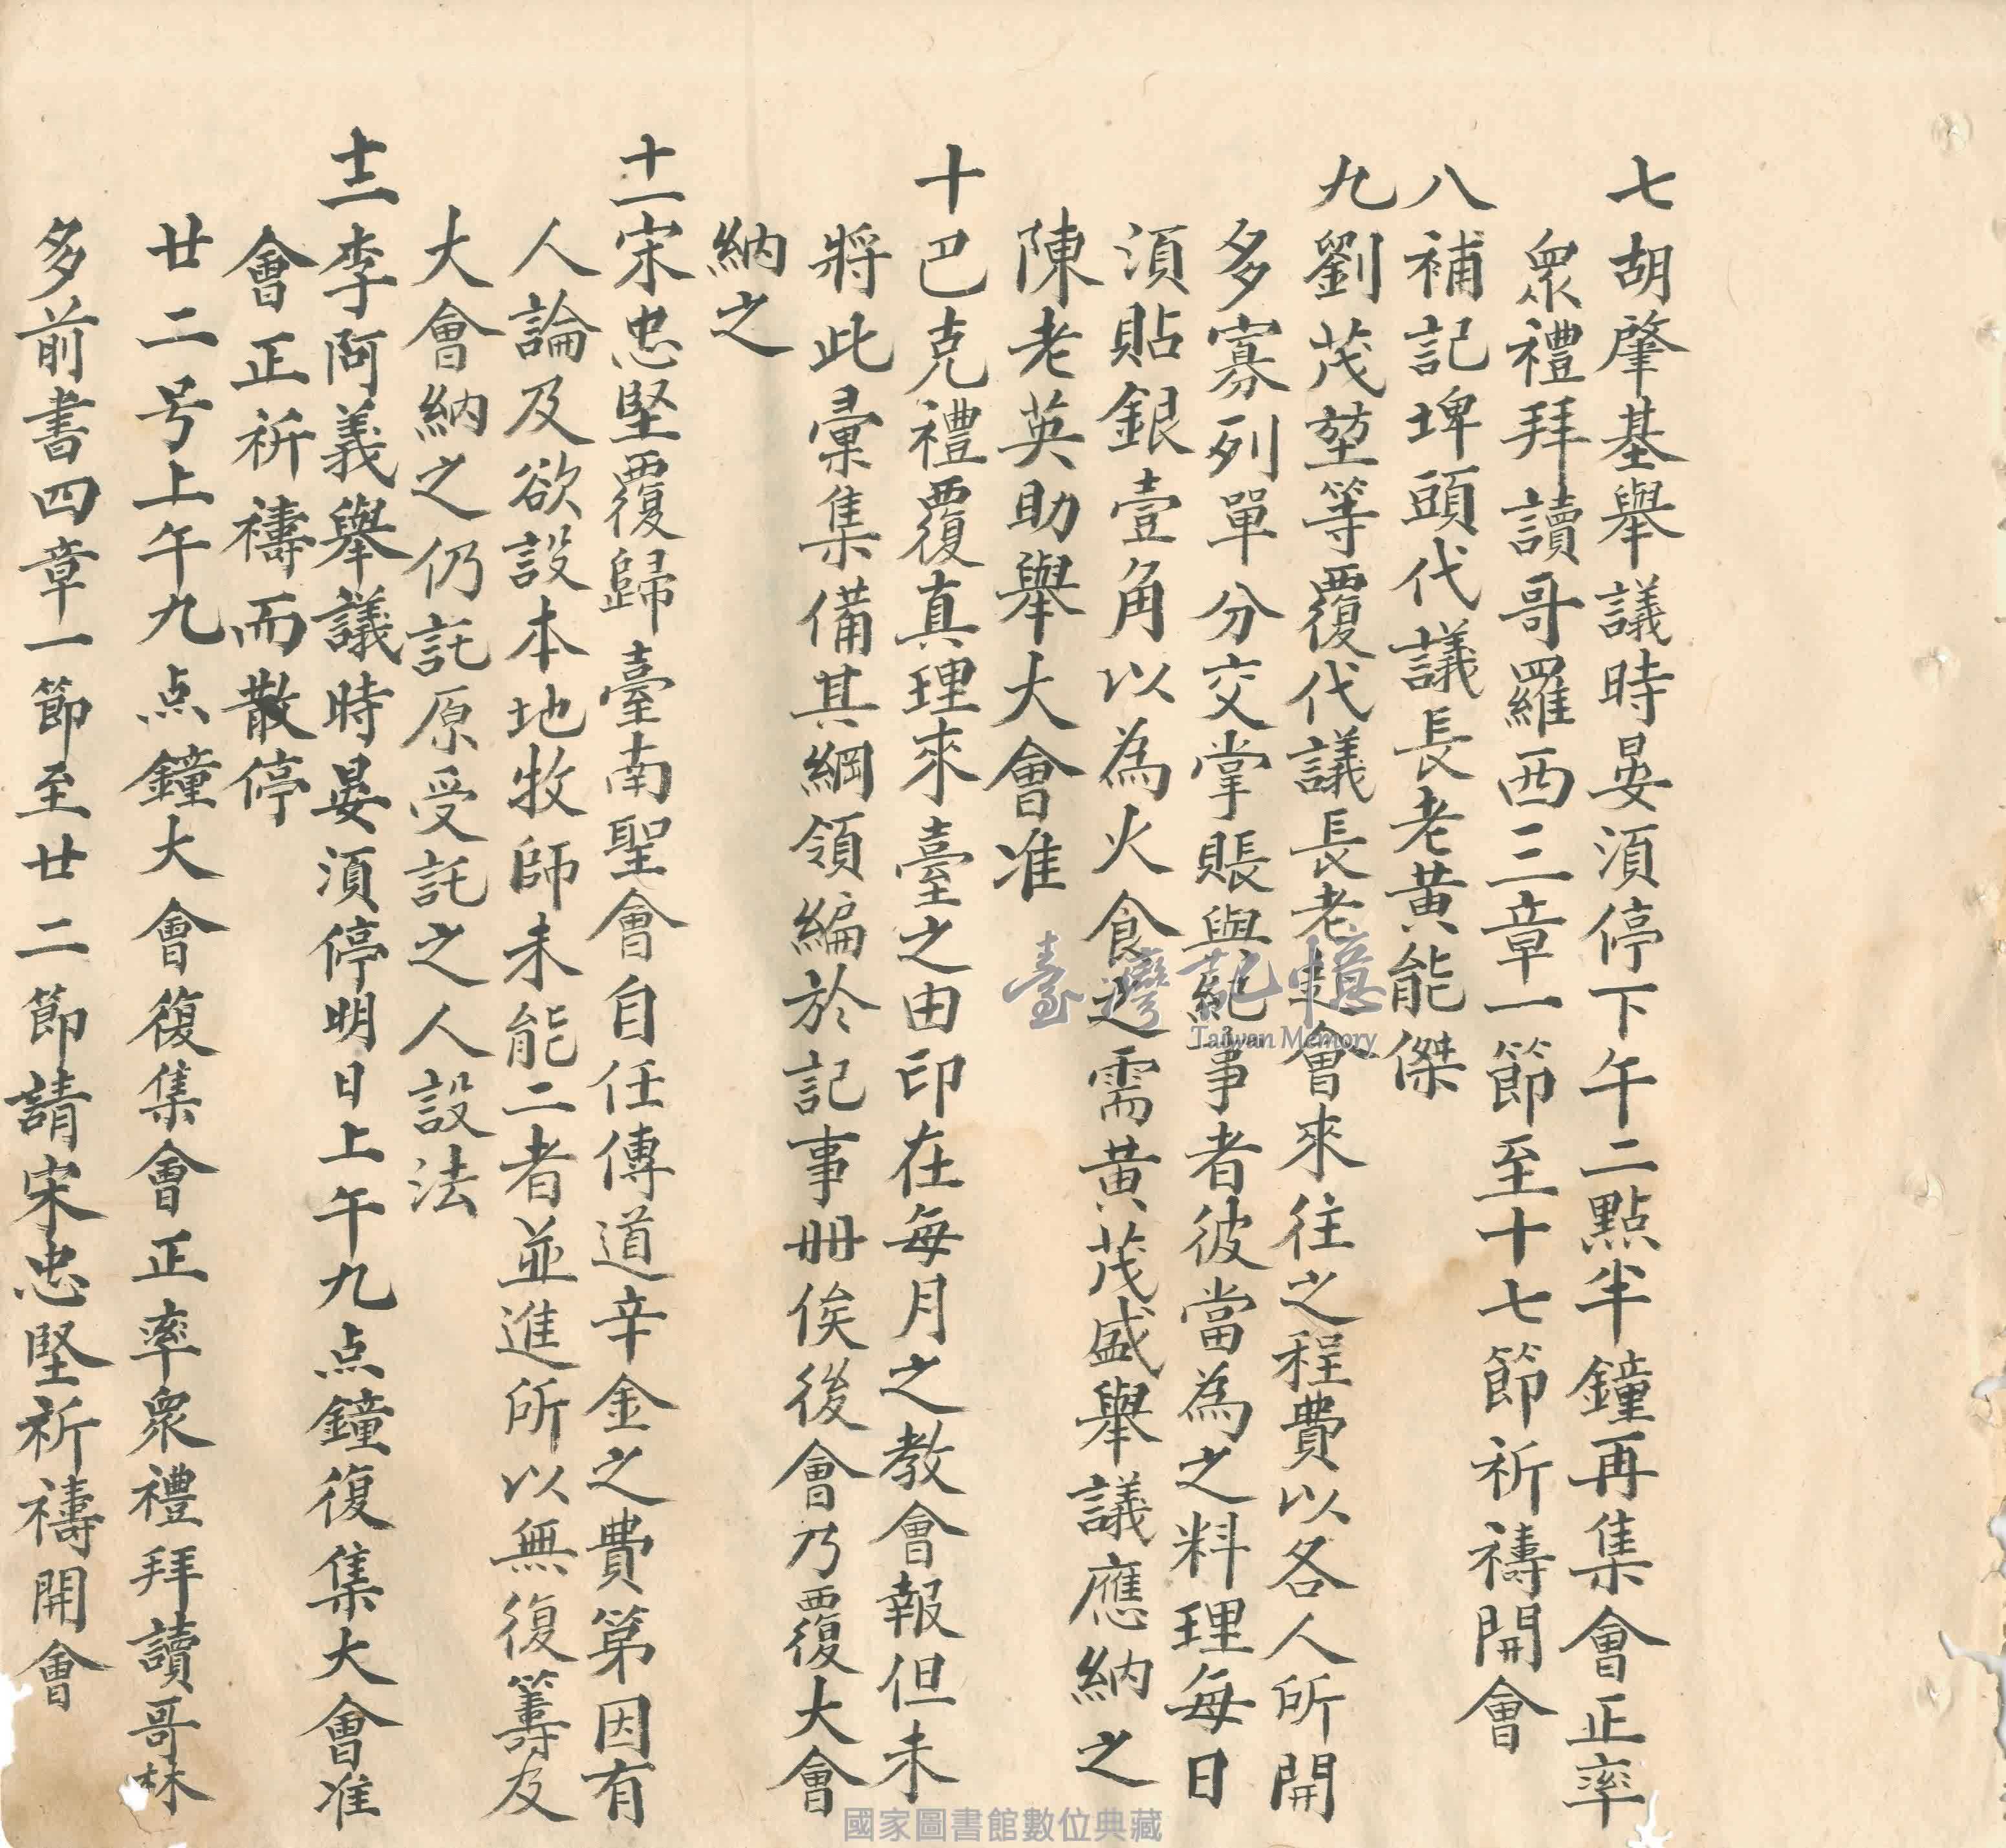 七胡肇基舉議時晏須停下午二點半鐘再集會正率
眾禮拜讀哥羅西三章一節至十七節祈禱開會
八補記埤頭代議長老黃能傑
九劉茂堃等覆代議長老赴會來往之程費以各人所開
多寡列單分交掌賬與紀事者彼當為之料理每日
須貼銀壹角以為火食之需黃茂盛舉議應納之
陳老英助舉大會准
十巴克禮覆真理來臺之由印在每月之教會報但未
將此彙集備其綱領編於記事冊俟後會乃覆大會
納之
十一宋忠堅覆歸臺南聖會自任傳道辛金之費第因有
人論及欲設本地牧師未能二者並進所以無復籌及
大會納之仍託原受託之人設法
十二李阿義舉議時晏須停明日上午九点鐘復集大會准
會正祈禱而散停
廿二号上午九点鐘大會復集會正率眾禮拜讀哥林
多前書四章一節至廿二節請宋忠堅祈禱開會
臺灣記憶
Taiwan Memory
國家圖書館數位典藏